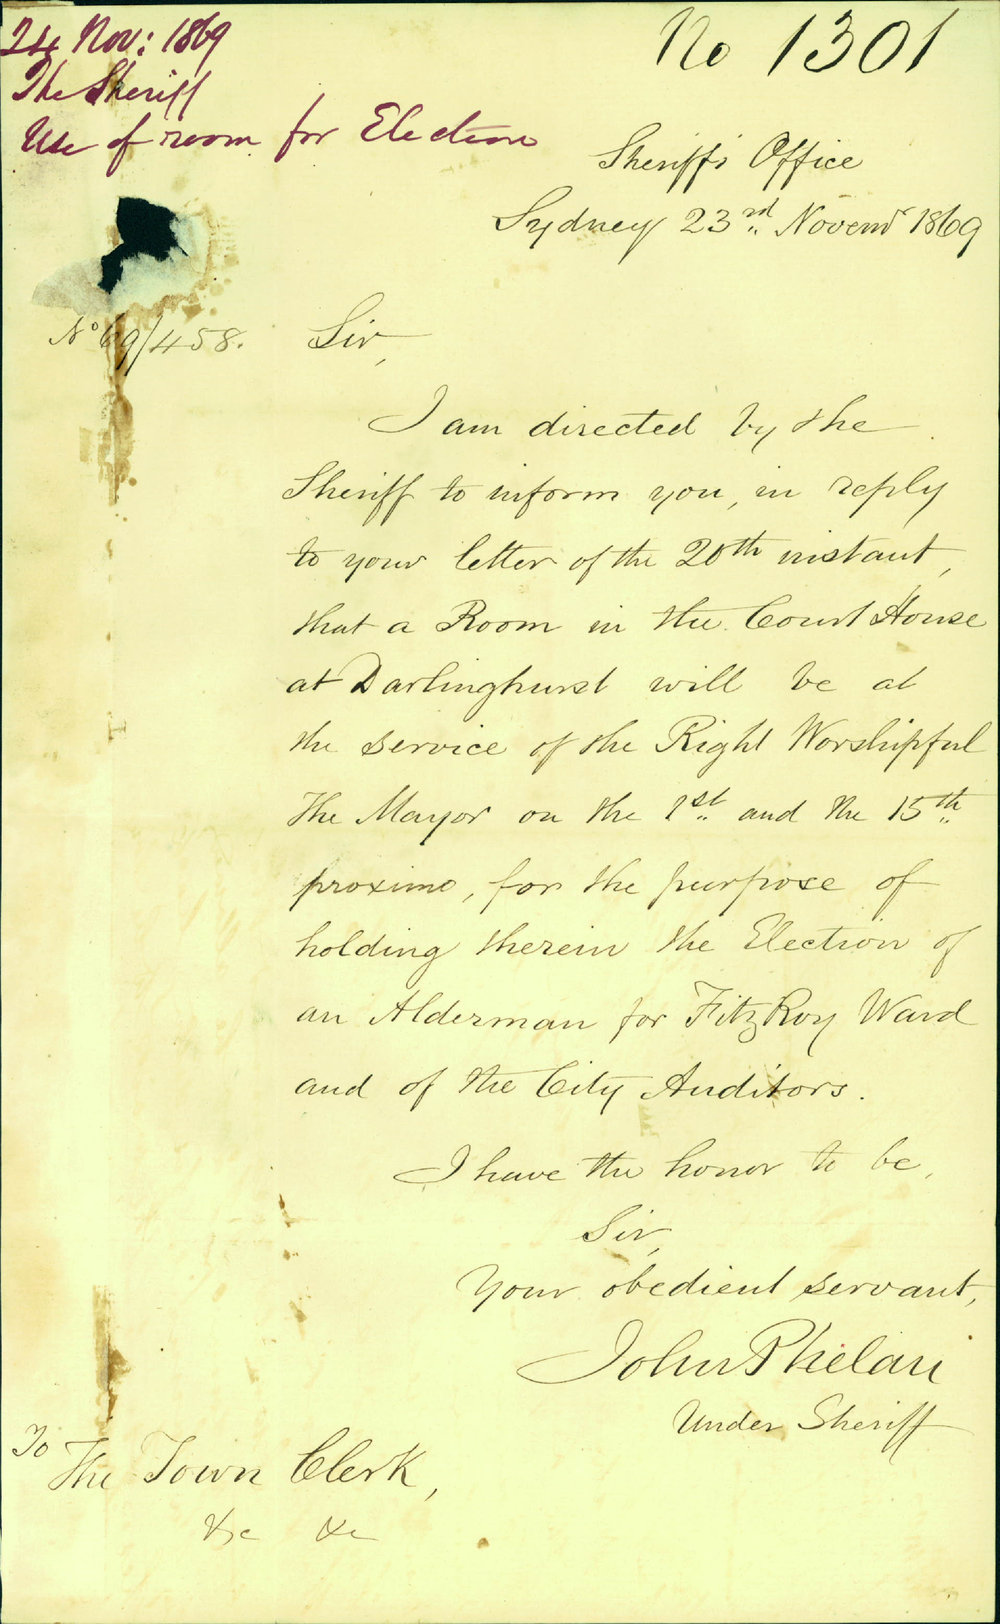 24 Nov: 1869
The Sheriff
Use of room for Election
No 1301
Sheriff's Office
Sydney 23rd Novemr 1869
No 69/458.
Sir,
I am directed by the
Sheriff to inform you, in reply
to your letter of the 20th instant,
that a Room in the Court House
at Darlinghurst will be at
the service of the Right Worshipful
the Mayor on the 1st and the 15th
proximo, for the purpose of
holding therein the Election of
an Alderman for FitzRoy Ward
and of the City Auditors.
I have the honor to be,
Sir,
Your obedient servant,
John Phelan
Under Sheriff
To
The Town Clerk,
&c &c